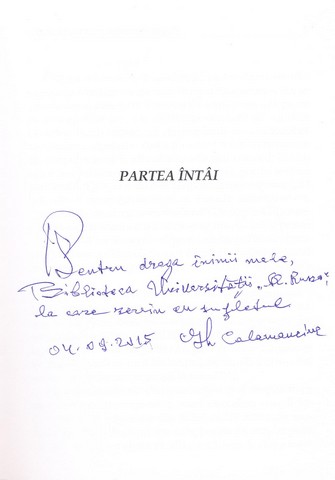 PARTEA ÎNTÂI
Pentru draga inimii mele,
Biblioteca Universității „Al. Russo”,
la care revin cu sufletul
04.09.2015 Gh Calamanciuc